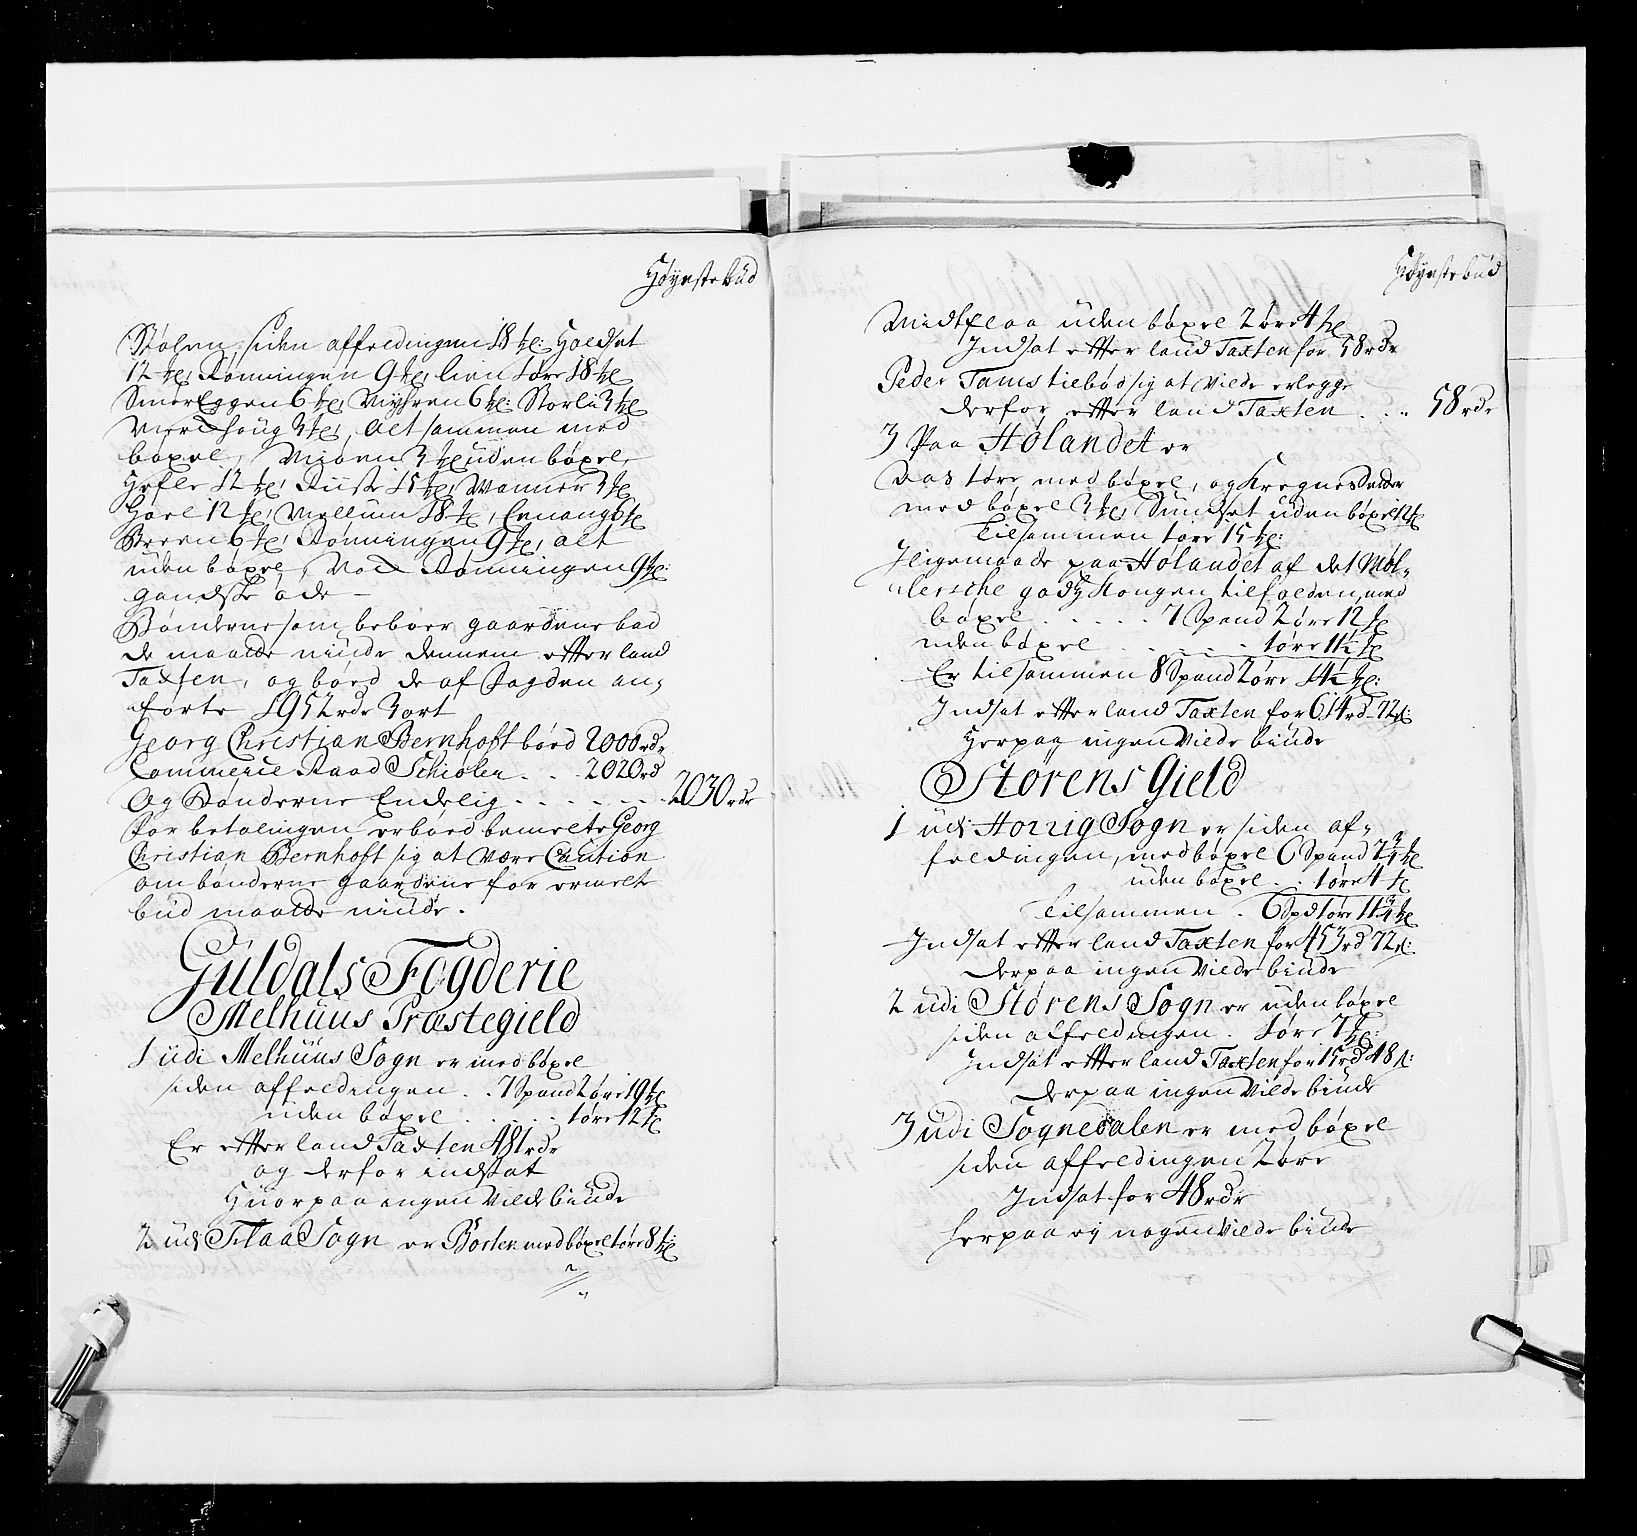 Høyeste bud
Stølen, siden affældingen 18 ℔: Holdset
12 ℔, Rønningen 9 ℔, lien 1 øre 18 ℔
Smøreggen 6 ℔, Myhren 6 ℔: Storli 3 ℔
houg 3 ℔, alt sammen med
bøxel, Moen 3 ℔ uden bøxel,
12 ℔, 15 ℔, 3 ℔
12 ℔, Mellum 18 ℔, 6 ℔
6 ℔, Rønningen 9 ℔, alt
uden bøxel, Nok Rønningen 9 ℔:
gandske øde –
Bønderne som beboer gaardene bad
de maatte niude dennem efter land
Taxten, og bød de af Fogden an-
førte 1952 rdr 3 ort
Georg Christian Bernhoft bød 2000 rdr
Commerce Raad Schiøler . . . 2020 rd
Og Bønderne Endelig . . . . . . 2030 rdr
For betalingen erbød bemelte Georg
Christian Bernhoft sig at være Caution
om bønderne gaardene for ermelte
bud maatte niude.
Guldals Fogderie
Melhuus Præstegield
1 udi Melhuus Sogn er med bøxel
siden affældingen . . 7 Spand 2 øre 19 ℔
uden bøxel . . . . . 1 øre 12 ℔
Er efter land Taxten 481 rdr
og derfor indsat
Hvorpaa ingen vilde biude
2 udi Flaa Sogn er Borten med bøxel 1 øre 8 ℔:
Høyeste bud
Midtflaa uden bøxel 2 øre 4 ℔
Indsat efter land Taxten for 58 rdr
Peder Tams tiebød sig at vilde erlegge
derfor efter land Taxten . . . 58 rdr
3 Paa Hølandet er
1 øre med bøxel, og
med bøxel 3 ℔, Sundset uden bøxel 12 ℔
Tilsammen 1 øre 15 ℔:
Iligemaade paa Hølandet af det Møl-
lersche godz Kongen tilfalden, med
bøxel . . . . . 7 Spand 2 øre 12 ℔
uden bøxel . . . . . 1 øre 11½ ℔
Er tilsammen 8 Spand 2 øre 14½ ℔:
Indsat efter land Taxten for 614 rd 72 s:
Herpaa ingen vilde biude
Størens Gield
1 udi Horrig Sogn er siden af-
feldingen, med bøxel 6 Spand 7¾ ℔
uden bøxel . . 1 øre 4 ℔
Tilsammen . 6 Spd 1 øre 11¾ ℔
Indsat efter land Taxten for 453 rd 72 s:
Derpaa ingen vilde biude
2 udi Størens Sogn er uden bøxel
siden affældingen . 1 øre 7 ℔:
Indsat efter land Taxten for 15 rd 48 s:
Derpaa ingen vilde biude
3 udi Sognedalen er med bøxel
siden affældingen 2 øre
Indsat for 48 rdr
herpaa ey nogen vilde biude